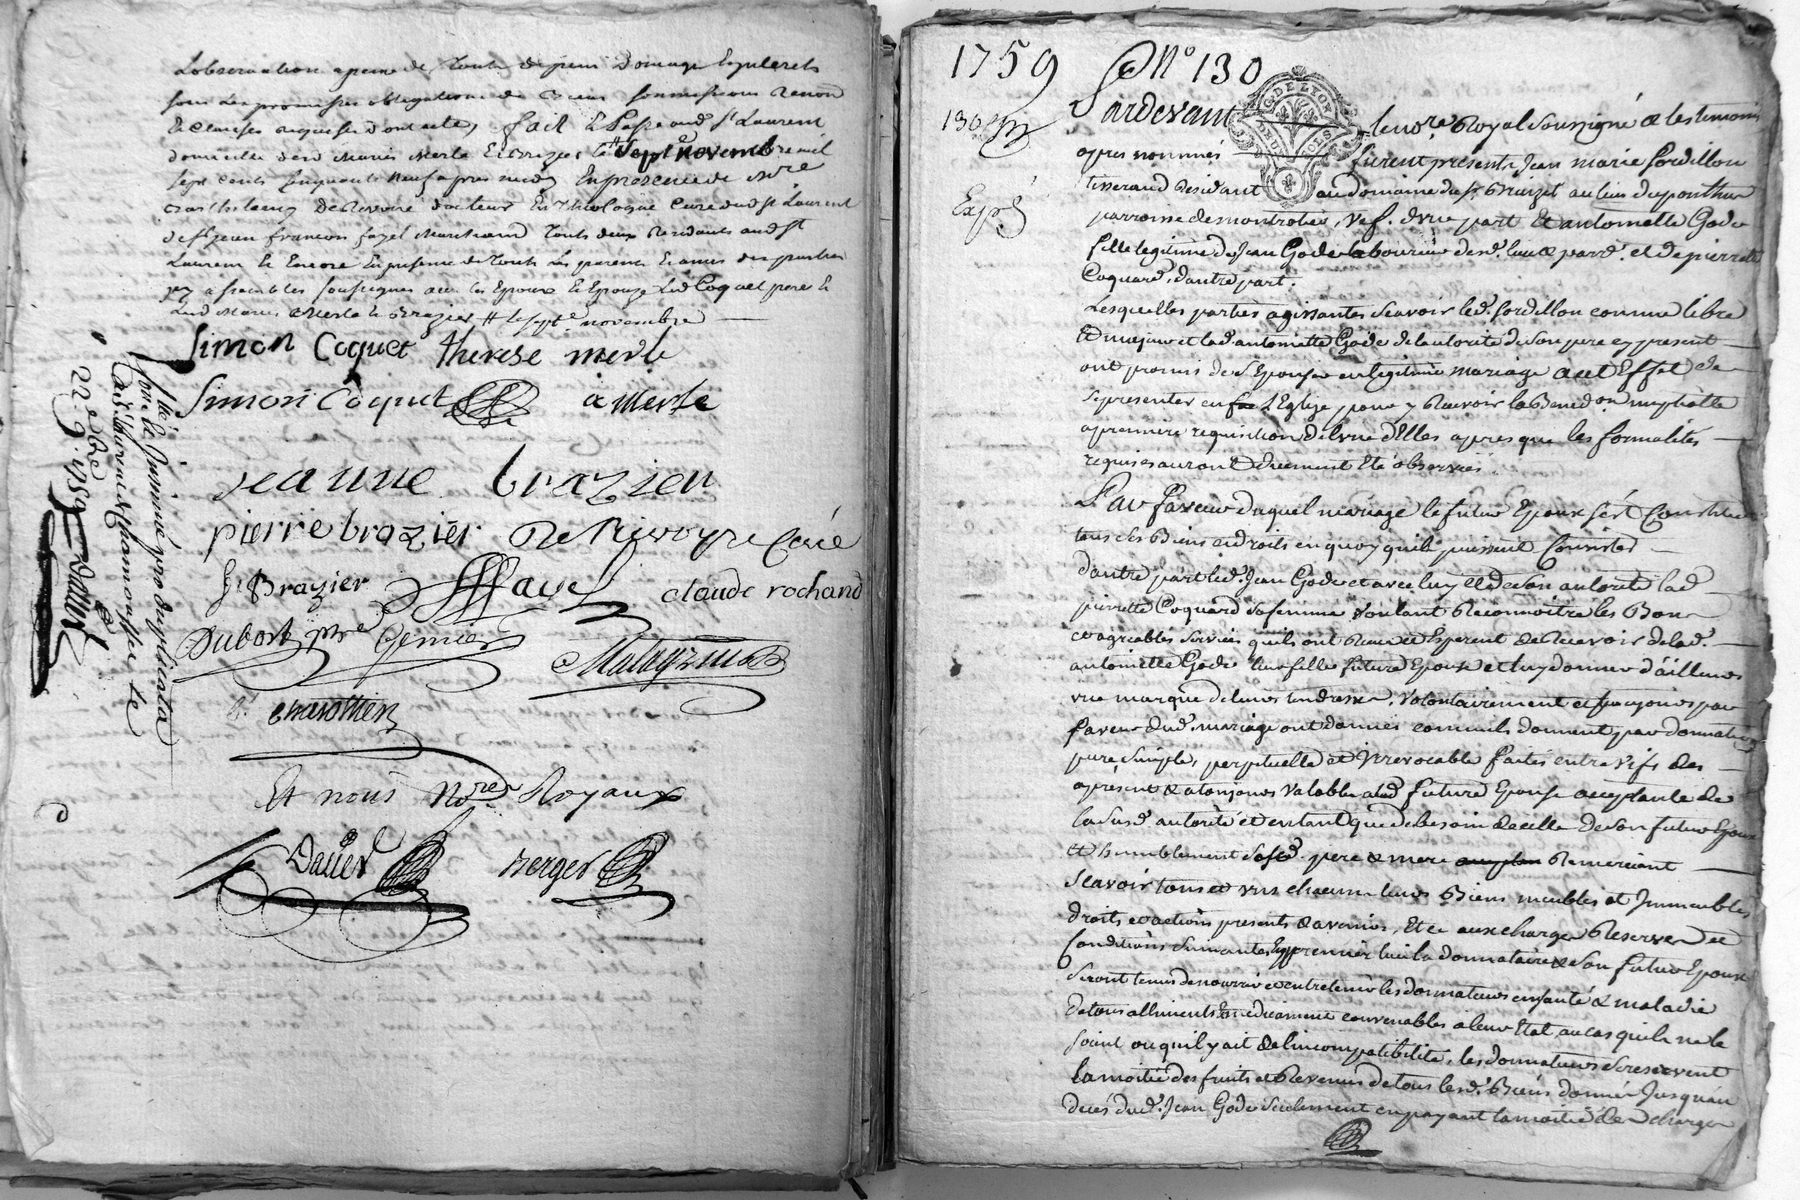 L'observation a peine de touts depens domage
sous les promesses obligations de Biens soumissions Renon
et clauses requises dont acte, fait & passé aud St Laurent
domicille desd mariés merle et Brazier le sept novembre mil
sept cents cinquante neuf apres midy En presence de Mre
De Rivoire docteur En Theologie Curé dud St Laurent
de Sr jean francois fayel marchand touts deux Residants aud St
Laurent & Encore En presence de touts les parents & amis des parties
icy assemblés soussignés avec les Epoux & Epouze Led Coquet pere &
Lesd mariés merle & Brazier # le sept.e novembre
Simon Coquet therese merle
Simon Coquet a merle
jeanne brazier
pierre brazier De Rivoyre Curé
J. Brazier fayel claude rochand
Dubost ptre Gernier
charottier
Et nous No.res Royaux
Dauer Berger
22.e 9.bre 1759
1759 N° 130
Pardevant G. DE LYON le no.re Royal soussigné & les temoins
130
apres nommés furent presents Jean marie sordillon
tisserand Residant au domaine du Sr au lieu du ponthus
Expé
parroisse de montrotier, vef. d'vne part Et antoinette Gode
fille legitime de Jean Gode laboureur de sd. lieu & parr.e et de pierrette
Coquard, d'autre part.
Lesquelles parties agissantes sçavoir led. sordillon comme libre
Et majeur et lad. antoinette Gode de l'autorité de son pere cy present
ont promis de s'Epouser en legitime mariage a cet Effet de
se presenter en l'Eglise pour y Recevoir la Bened.on nuptialle
a premiere requisition de l'vne d'Elles apres que les formalités
requises auront duement Eté observées.
En faveur duquel mariage le futur Epoux s'est Constitué
tous ses Biens et droits en quoy qu'ils puissent Consister
d'autre part led. Jean Gode et avec luy et de son autorité lad.
pierrette Coquard sa femme voulant Reconnoitre les Bons
et agreables services qu'ils ont Recu et Esperent de Recevoir de lad.
antoinette Gode leur fille future Epouse et luy donner d'ailleurs
vne marque de leurs tendresse, volontairement et
faveur dud. mariage ont donné comme ils donnent par donnation
pure, simple, perpetuelle et irrevocable faite entre vifs des
apresent & a toujours valable a lad future Epouse acceptante de
la susd. autorité et en tant que de besoin de celle de son futur Epoux
et humblement sesd. pere & mere Remerciant
sçavoir tous et vns chacuns leurs Biens meubles et Immeubles
droits et actions presents & avenir, Et ce aux charges Reserves et
Conditions suivantes, En premier lieu la donnataire & son futur Epoux
seront tenus de nourrir et entretenir les donnateurs en santé & maladie
de tous alliments & medicaments convenables a leur Etat, au cas qu'ils ne le
soient ou qu'il y ait de l'incompatibilité, les donnateurs se reservent
la moitié des fruits et Revenus de tous lesd. Biens donnés Jusqu'au
decés dud. Jean Gode seulement en payant la moitié des charges